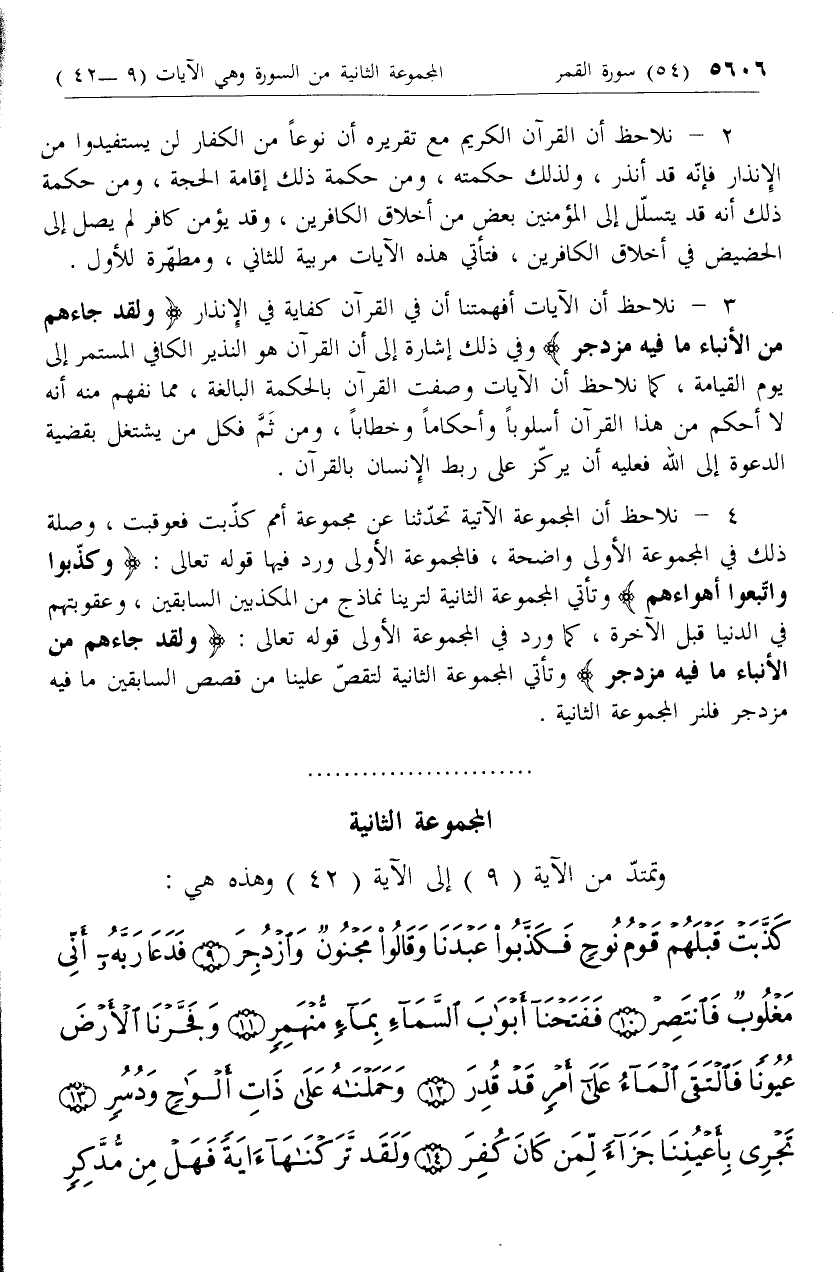 ٥٦٠٦ (٥٤) سورة القمر المجموعة الثانية من السورة وهي الآيات (٩ — ٤٢)
٢ – نلاحظ أن القرآن الكريم مع تقريره أن نوعاً من الكفار لن يستفيدوا من
الإنذار فإنّه قد أنذر ، ولذلك حكمته ، ومن حكمة ذلك إقامة الحجة ، ومن حكمة
ذلك أنه قد يتسلّل إلى المؤمنين بعض من أخلاق الكافرين ، وقد يؤمن كافر لم يصل إلى
الحضيض في أخلاق الكافرين ، فتأتي هذه الآيات مربية للثاني ، ومطهّرة للأول .
٣ – نلاحظ أن الآيات أفهمتنا أن في القرآن كفاية في الإنذار ﴿ ولقد جاءهم
من الأنباء ما فيه مزدجر ﴾ وفي ذلك إشارة إلى أن القرآن هو النذير الكافي المستمر إلى
يوم القيامة ، كما نلاحظ أن الآيات وصفت القرآن بالحكمة البالغة ، مما نفهم منه أنه
لا أحكم من هذا القرآن أسلوباً وأحكاماً وخطاباً ، ومن ثَمَّ فكل من يشتغل بقضية
الدعوة إلى الله فعليه أن يركّز على ربط الإنسان بالقرآن .
٤ – نلاحظ أن المجموعة الآتية تحدّثنا عن مجموعة أمم كذّبت فعوقبت ، وصلة
ذلك في المجموعة الأولى واضحة ، فالمجموعة الأولى ورد فيها قوله تعالى : ﴿ وكذّبوا
واتّبعوا أهواءهم ﴾ وتأتي المجموعة الثانية لترينا نماذج من المكذبين السابقين ، وعقوبتهم
في الدنيا قبل الآخرة ، كما ورد في المجموعة الأولى قوله تعالى : ﴿ ولقد جاءهم من
الأنباء ما فيه مزدجر ﴾ وتأتي المجموعة الثانية لتقصّ علينا من قصص السابقين ما فيه
مزدجر فلنر المجموعة الثانية .
.........................
المجموعة الثانية
وتمتدّ من الآية ( ٩ ) إلى الآية ( ٤٢ ) وهذه هي :
كَذَّبَتْ قَبْلَهُمْ قَوْمُ نُوحٍ فَكَذَّبُوا۟ عَبْدَنَا وَقَالُوا۟ مَجْنُونٌ وَٱزْدُجِرَ ﴿٩﴾ فَدَعَا رَبَّهُۥٓ أَنِّى
مَغْلُوبٌ فَٱنتَصِرْ ﴿١٠﴾ فَفَتَحْنَآ أَبْوَٰبَ ٱلسَّمَآءِ بِمَآءٍ مُّنْهَمِرٍ ﴿١١﴾ وَفَجَّرْنَا ٱلْأَرْضَ
عُيُونًا فَٱلْتَقَى ٱلْمَآءُ عَلَىٰٓ أَمْرٍ قَدْ قُدِرَ ﴿١٢﴾ وَحَمَلْنَٰهُ عَلَىٰ ذَاتِ أَلْوَٰحٍ وَدُسُرٍ ﴿١٣﴾
تَجْرِى بِأَعْيُنِنَا جَزَآءً لِّمَن كَانَ كُفِرَ ﴿١٤﴾ وَلَقَد تَّرَكْنَٰهَآ ءَايَةً فَهَلْ مِن مُّدَّكِرٍ